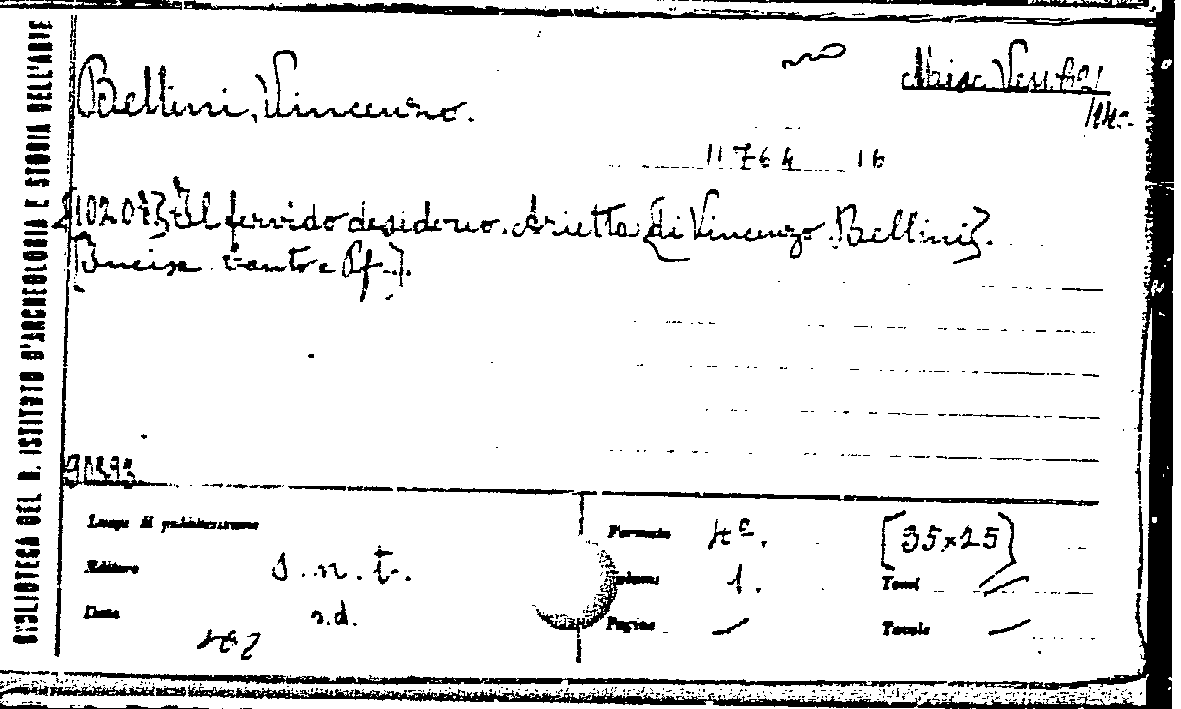 BIBLIOTECA DEL R. ISTITUTO D'ARCHEOLOGIA E STORIA DELL'ARTE
Bellini, Vincenzo.
Misc. Vess.
11764 16
Il fervido desiderio. Arietta [di Vincenzo Bellini].
Canto e Pf.].
90393
Luogo di pubblicazione
Editore s.n.t.
Data s.d.
Formato 4º. [35x25]
Volumi 1. Tomi
Pagine Tavole